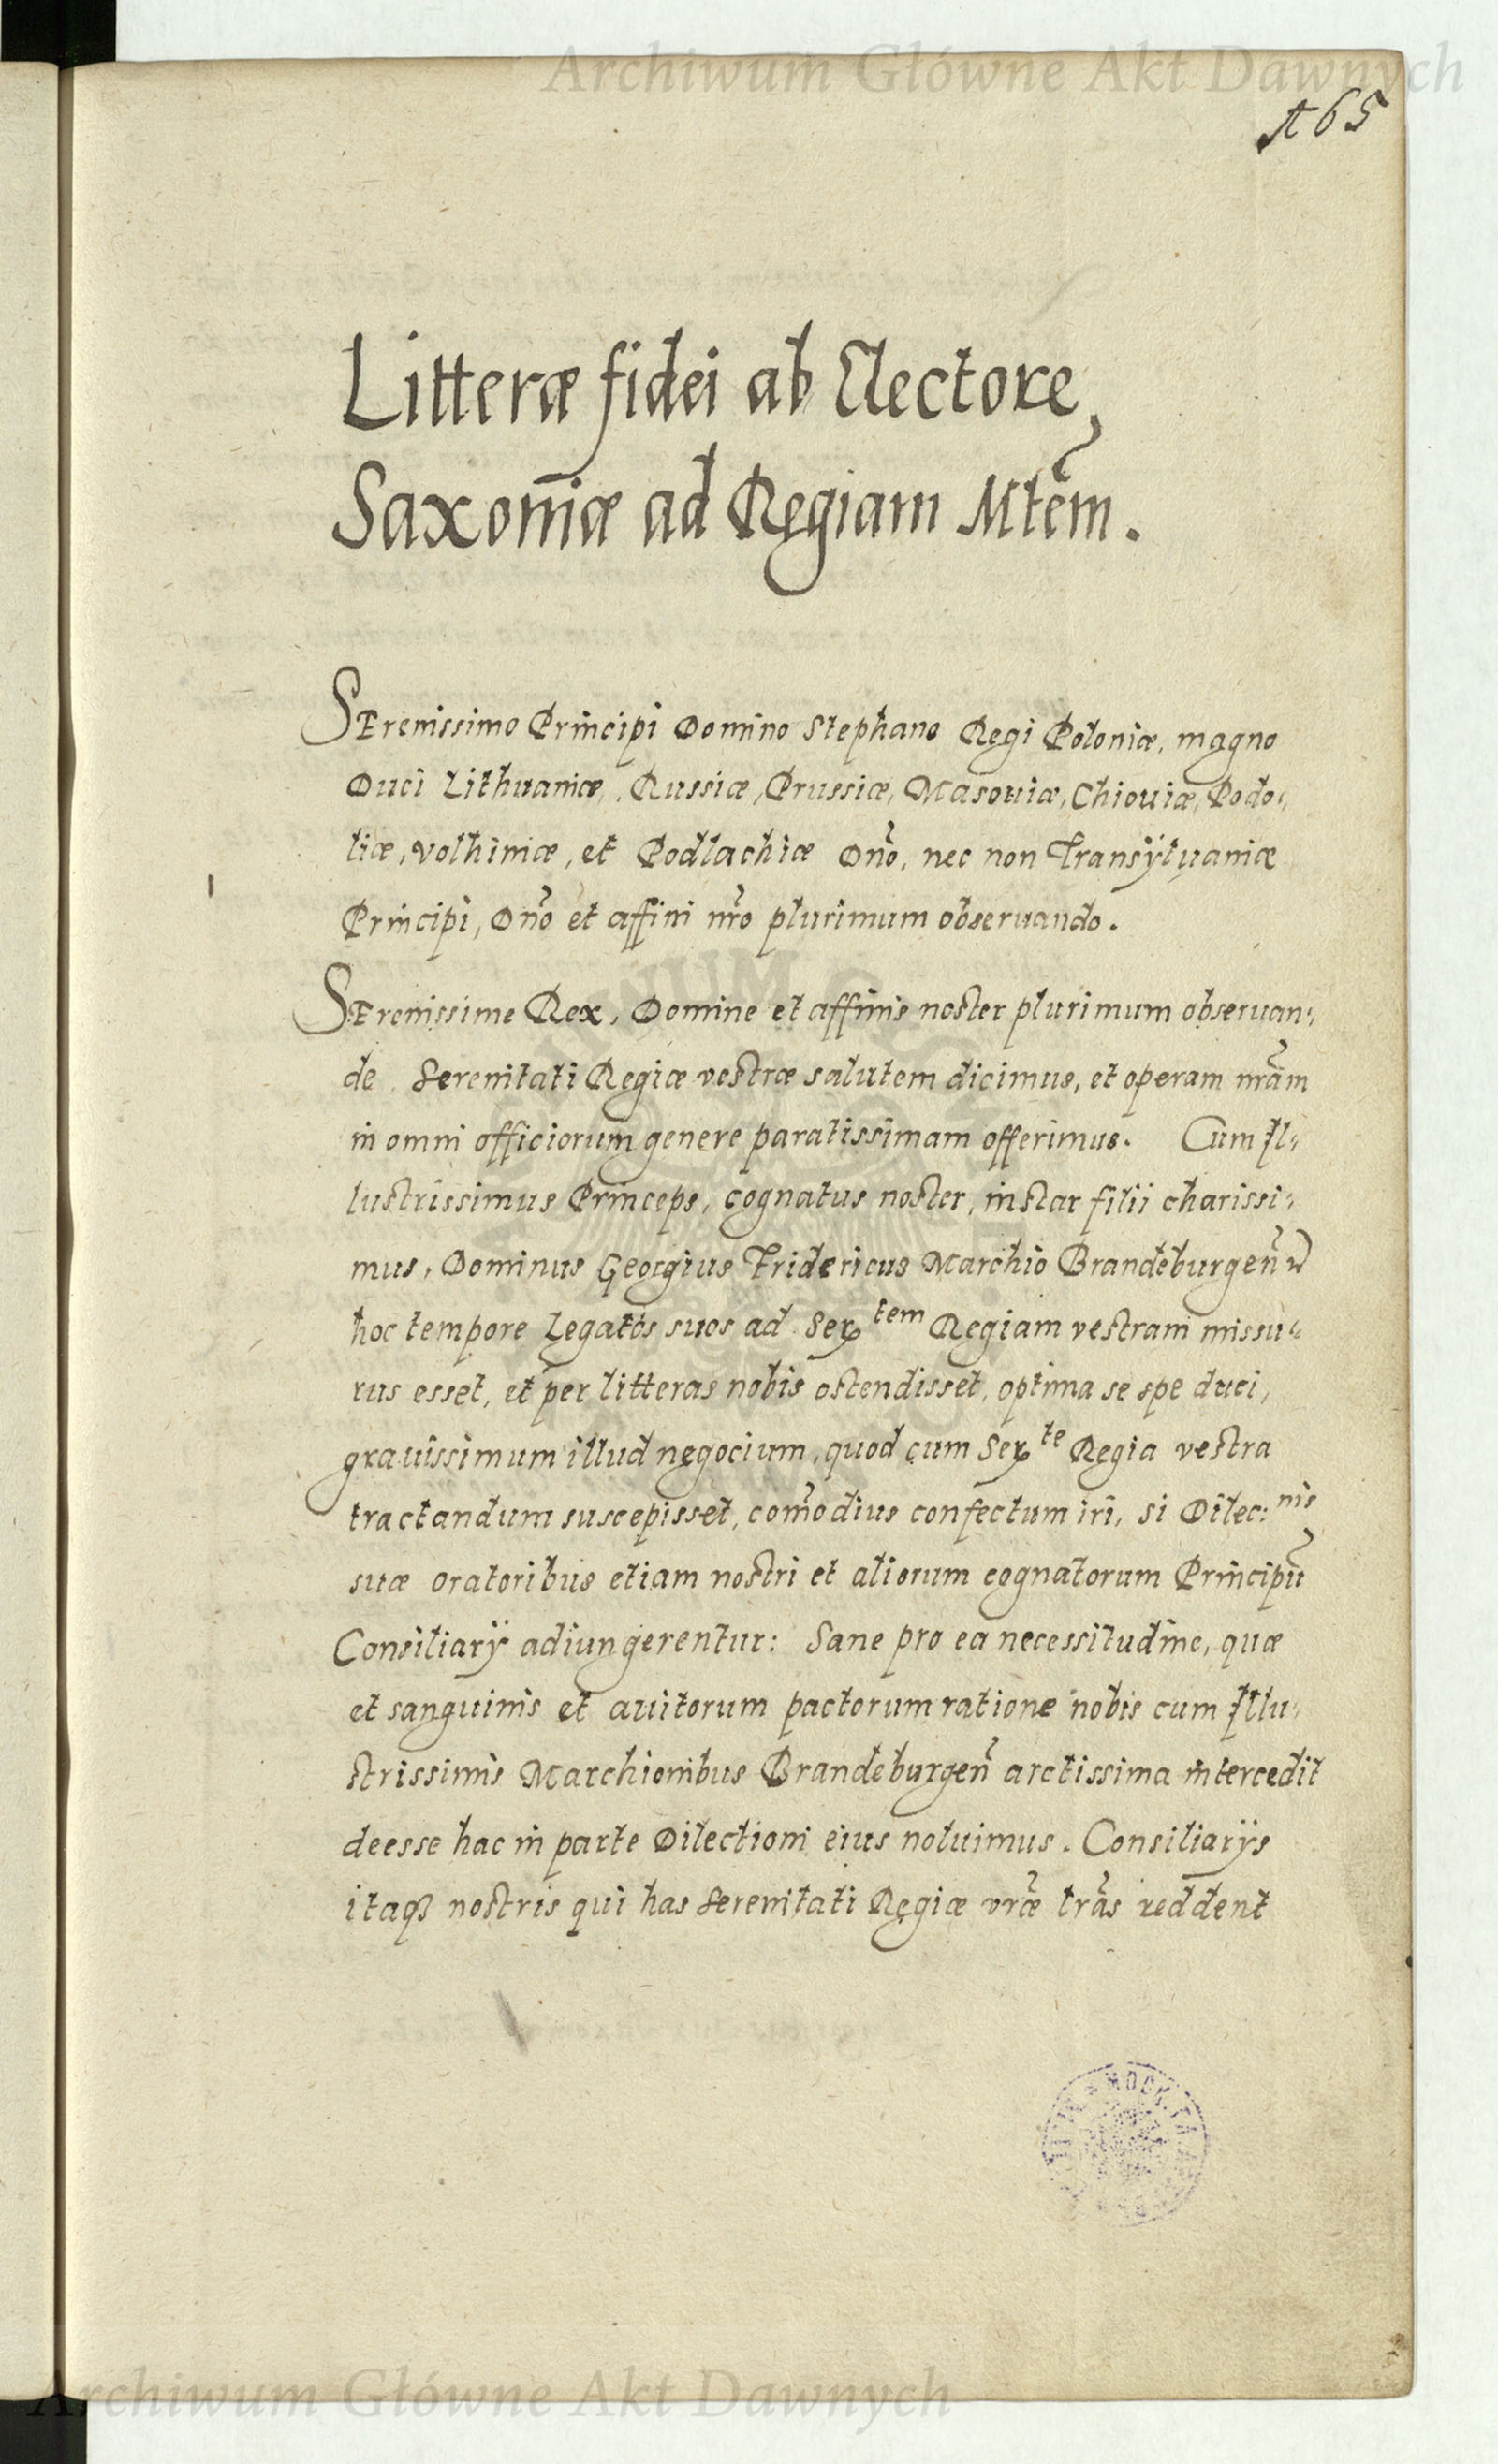 Archiwum Główne Akt Dawnych
165
Litteræ fidei ab Electore
Saxoniæ ad Regiam Mtem̃.
SErenissimo Principi Domino Stephano Regi Poloniæ, magno
Duci Lithuaniæ, Russiæ, Prussiæ, Masouiæ, Chiouiæ, Podo-
liæ, Volhiniæ, et Podlachiæ Dnõ, nec non Transÿluaniæ
Principi, Dnõ et affini nr̃o plurimum obseruando.
SErenissime Rex, Domine et affinis noster plurimum obseruan-
de. Serenitati Regiæ vestræ salutem dicimus, et operam nrãm
in omni officiorum genere paratissimam offerimus. Cum Il-
lustrissimus Princeps, cognatus noster, instar filii charissi-
mus, Dominus Georgius Fridericus Marchio Brandeburgeñ
hoc tempore Legatos suos ad Ser tem Regiam vestram missu-
rus esset, et per litteras nobis ostendisset, optima se spe duci,
grauissimum illud negocium, quod cum Ser te Regia vestra
tractandum suscepisset, com̃odius confectum iri, si Dilec: nis
suæ oratoribus etiam nostri et aliorum cognatorum Principũ
Consiliarÿ adiungerentur: Sane pro ea necessitudine, quæ
et sanguinis et auitorum pactorum ratione nobis cum Illu-
strissimis Marchionibus Brandeburgeñ arctissima intercedit
deesse hac in parte Dilectioni eius noluimus. Consiliarÿs
itaqꝫ nostris qui has Serenitati Regiæ vrãe lrãs reddent
Archiwum Główne Akt Dawnych